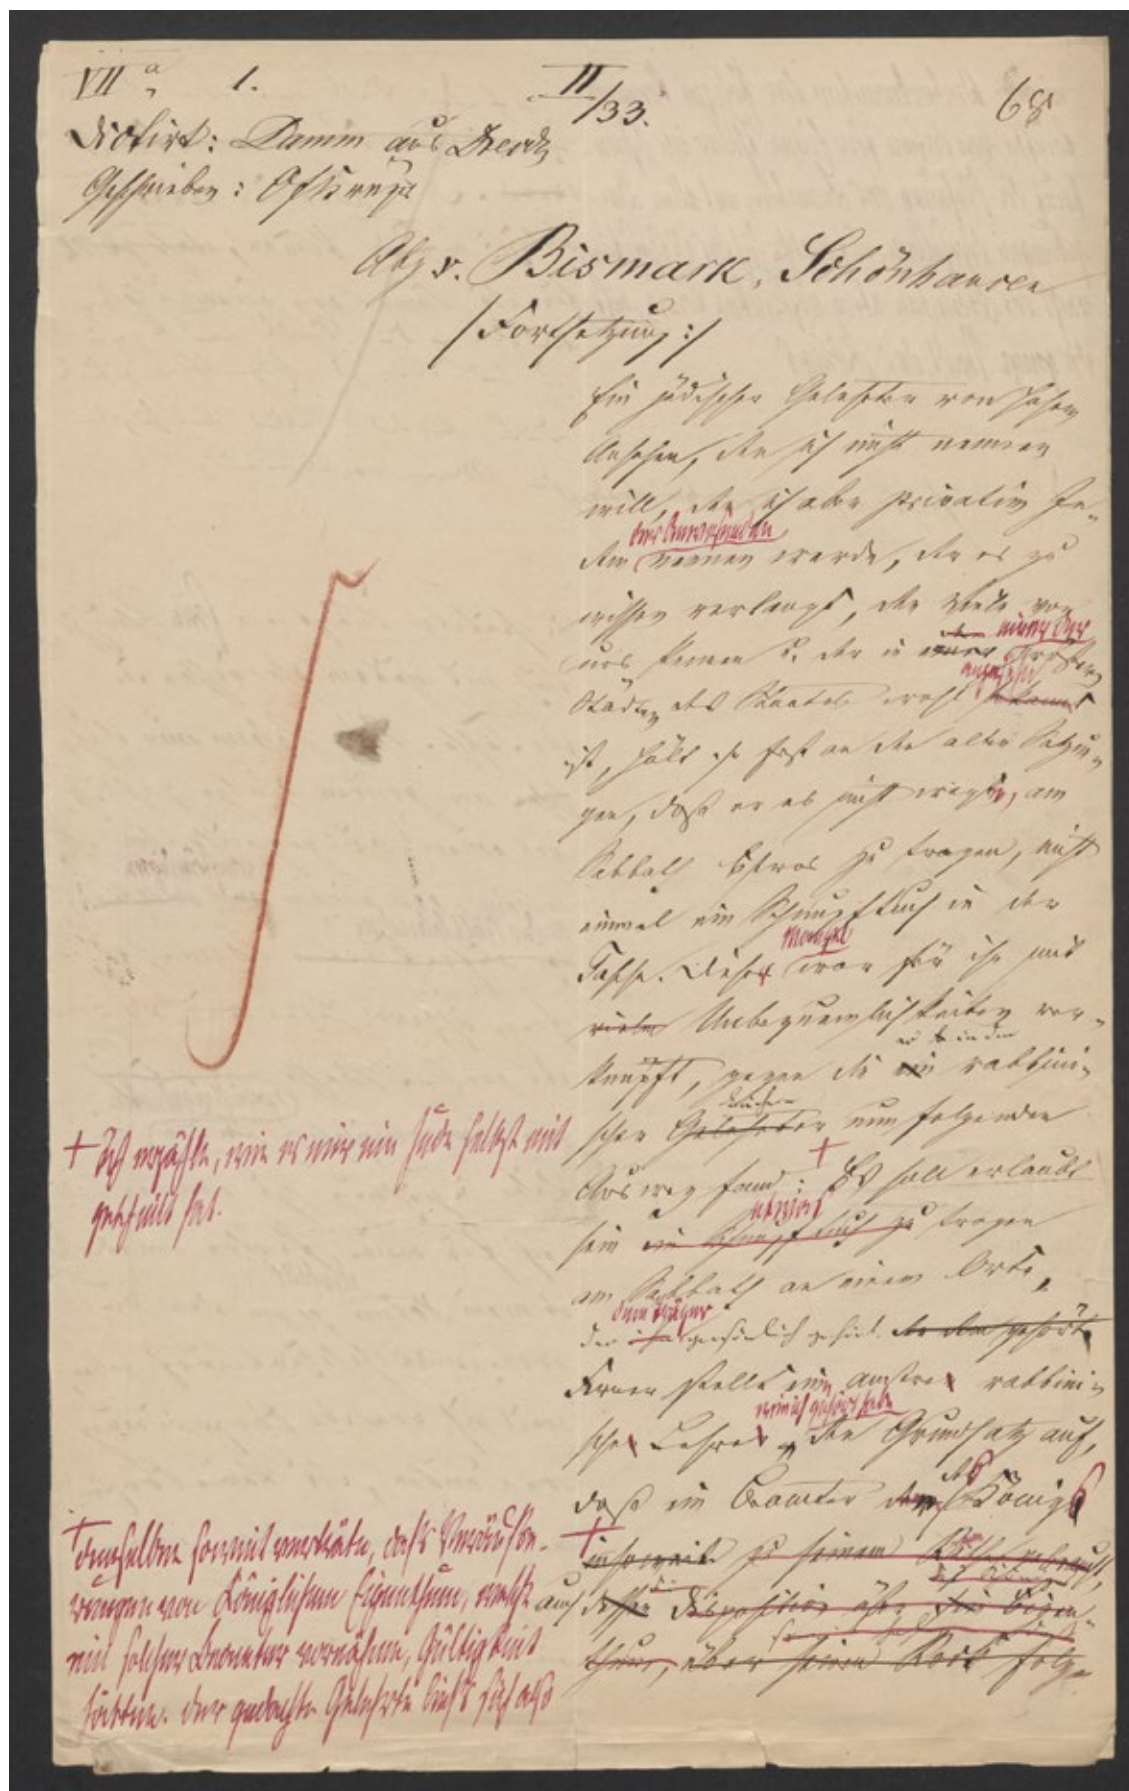 VII a, 1.
II/33.
68
Dictirt: Damm aus
Geschrieben:
Abg. v. Bismark, Schönhausen
/Fortsetzung:/
Ein jüdischer Gelehrter von hohem
Ansehen, den ich nicht nennen
will, den ich aber privatim Je-
der Anwesenden
dem nennen werde, der es zu
wissen verlangt, den Viele von
einer der
uns kennen u. der in einer größten
angesehen
Städten des Staates wohl bekannt
ist, hält so fest an den alten Satzun-
gen, daß er es nicht wagte, am
Sabbath Etwas zu tragen, nicht
einmal ein Schnupftuch in der
Mangel
Tasche. Dieser war für ihn mit
vielen Unbequemlichkeiten ver-
er in den
knüpft, gegen die ein rabbini-
schen Gelehrter nun folgenden
Ausweg fand: + Es soll erlaubt
sein ein Schnupftuch zu tragen
am Sabbath an einem Orte,
dem Träger
der ihm persönlich gehört. der dem gehört
Ferner stellt eine andere rabbini-
wie ich gehört habe
sche Lehre, den Grundsatz auf,
des
daß ein Beamter des Königs
+ insoweit zu seinem
auch dessen Disposition über sein Eigen-
thum, über seinen Rock folge
+ Ich erzähle, wie es mir ein Jude selbst mit
getheilt hat.
+ denselben soweit vertrete, daß Veräuße-
rungen von Königlichem Eigenthum, welche
ein solcher Beamter vornähme, Gültigkeit
hätten. Der gedachte Gelehrte ließ sich also